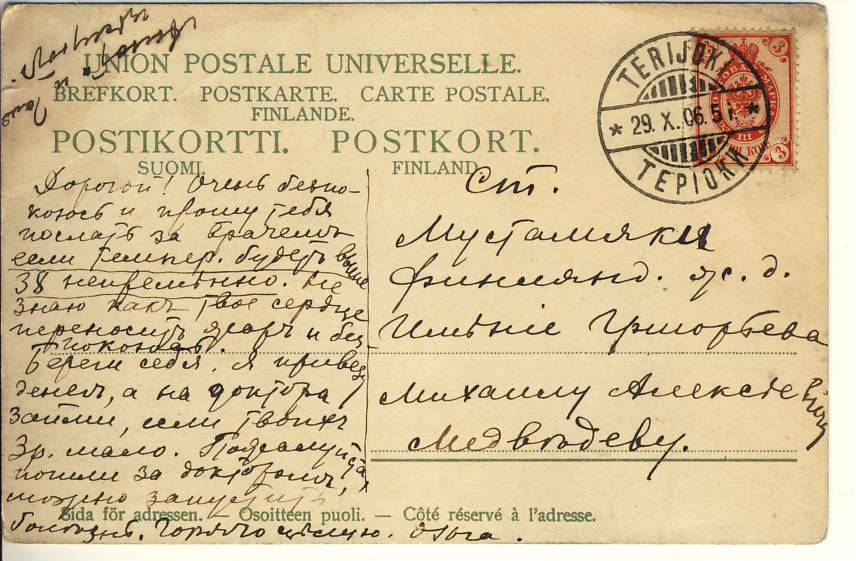 UNION POSTALE UNIVERSELLE.
BREFKORT. POSTKARTE. CARTE POSTALE.
FINLANDE.
POSTIKORTTI. POSTKORT.
SUOMI. FINLAND.
TERIJOKI
* 29. X. 06. 5 i. *
ТЕРІОКИ
3
3
Дорогой! Очень безпо-
коюсь и прошу тебя
послать за врачемъ
если темпер. будетъ выше
38 непременно. Не
знаю какъ твое сердце
переноситъ жаръ и без
покоюсь.
Береги себя. Я привезу
денегъ, а на доктора
займи, если твоихъ
3 р. мало. Пожалуйста,
пошли за докторомъ,
можно запустить
болѣзнь. Горячо цѣлую. Ольга.
Ст.
Мустамяки
Финлянд. ж. д.
Имѣніе Григорьева
Михаилу Алексѣевичу
Медвѣдеву.
Sida för adressen. — Osoitteen puoli. — Côté réservé à l'adresse.